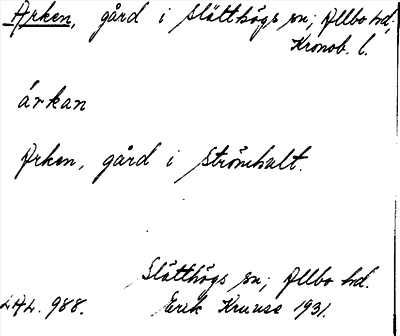 Arken, gård i Slätthögs sn; Allbo hd;
Kronob. l.
árkan
Arken, gård i Strömhult.
Slätthögs sn; Allbo hd.
LAL. 988. Erik Kruuse 1931.